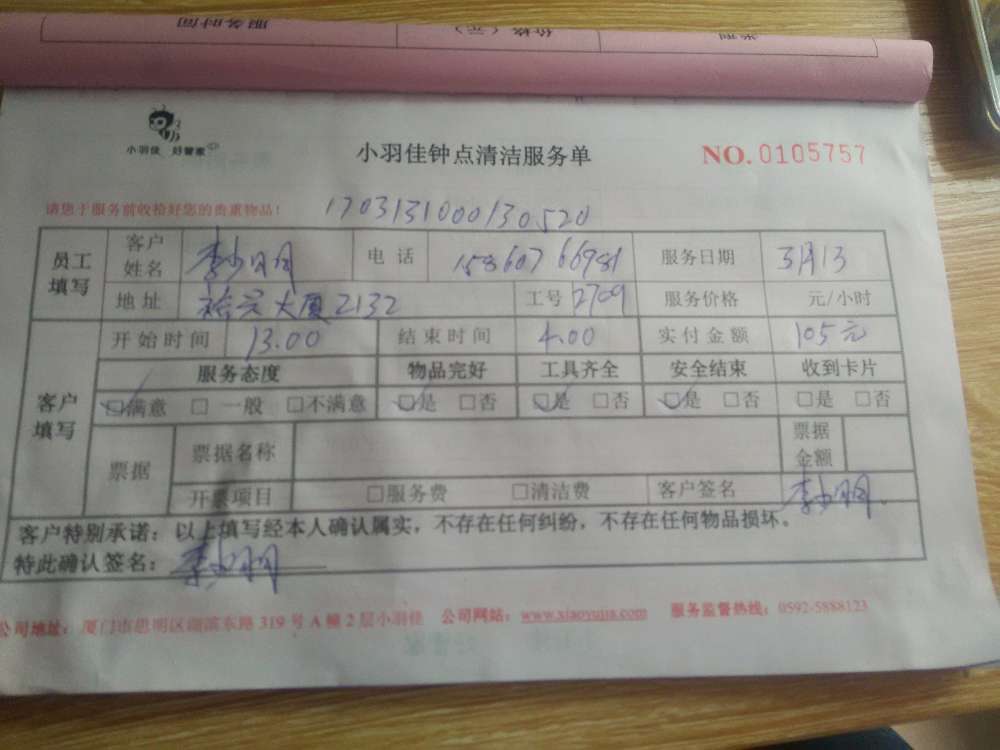 服务时间 价格（元）
小羽佳 好管家
小羽佳钟点清洁服务单
NO.0105757
请您于服务前收拾好您的贵重物品！ 1703131000130520
员工填写 客户姓名 李小明 电话 15860766981 服务日期 3月13
地址 裕宏大厦2132 工号 2709 服务价格 元/小时
客户填写 开始时间 13.00 结束时间 4.00 实付金额 105元
服务态度 物品完好 工具齐全 安全结束 收到卡片
☑满意 □一般 □不满意 ☑是 □否 ☑是 □否 ☑是 □否 □是 □否
票据 票据名称 票据金额
开票项目 □服务费 □清洁费 客户签名 李小明
客户特别承诺：以上填写经本人确认属实，不存在任何纠纷，不存在任何物品损坏。
特此确认签名：李小明
公司地址：厦门市思明区湖滨东路319号A幢2层小羽佳 公司网站：www.xiaoyujia.com 服务监督热线：0592-5888123